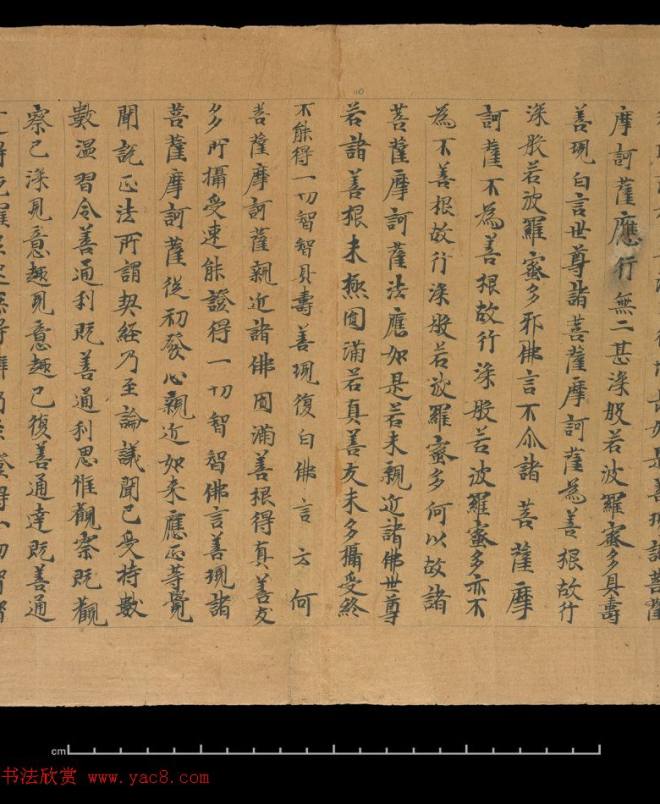 是善現諸菩薩
摩訶薩應行無二甚深般若波羅蜜多具壽
善現白言世尊諸菩薩摩訶薩為善根故行
深般若波羅蜜多耶佛言不尒諸菩薩摩
訶薩不為善根故行深般若波羅蜜多亦不
為不善根故行深般若波羅蜜多何以故諸
菩薩摩訶薩法應如是若未親近諸佛世尊
若諸善根未極圓滿若真善友未多攝受終
不能得一切智智具壽善現復白佛言云何
菩薩摩訶薩親近諸佛圓滿善根得真善友
多所攝受速能證得一切智智佛言善現諸
菩薩摩訶薩從初發心親近如来應正等覺
聞說正法所謂契經乃至論議聞已受持數
數温習令善通利既善通利思惟觀察既觀
察已深見意趣見意趣已復善通達既善通
得一切智智
cm
书法欣赏 www.yac8.com